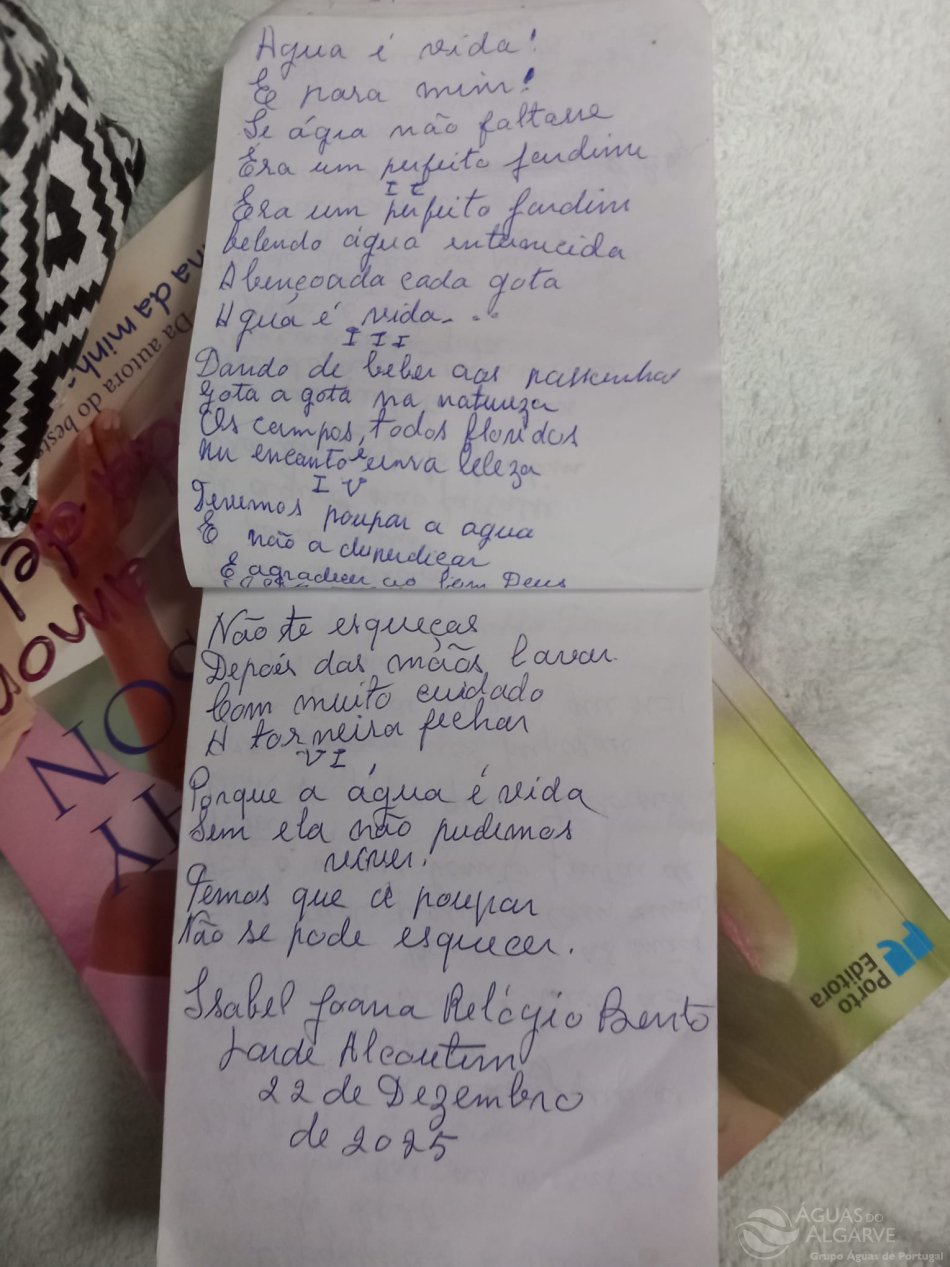 Agua é vida!
E para mim!
Se água não faltasse
Éra um perfeito jardim
II
Éra um perfeito jardim
bebendo água
Abençoada cada gota
Água é vida...
III
Dando de beber aos
gota a gota na natureza
Os campos, todos floridos
um encanto e uma beleza
IV
Devemos poupar a agua
E não a
E agradecer ao bom Deus
Não te esqueças
Depois das mãos lavar
Com muito cuidado
A torneira fechar
VI
Porque a água é vida
Sem ela não pudemos
viver!
Temos que a poupar
Não se pode esquecer.
Isabel Joana Relógio Bento
Alcoutim
22 de Dezembro
de 2025
na da minh
Da autora do bests
SON
HY
Porto
Editora
ÁGUAS DO
ALGARVE
Grupo Águas de Portugal